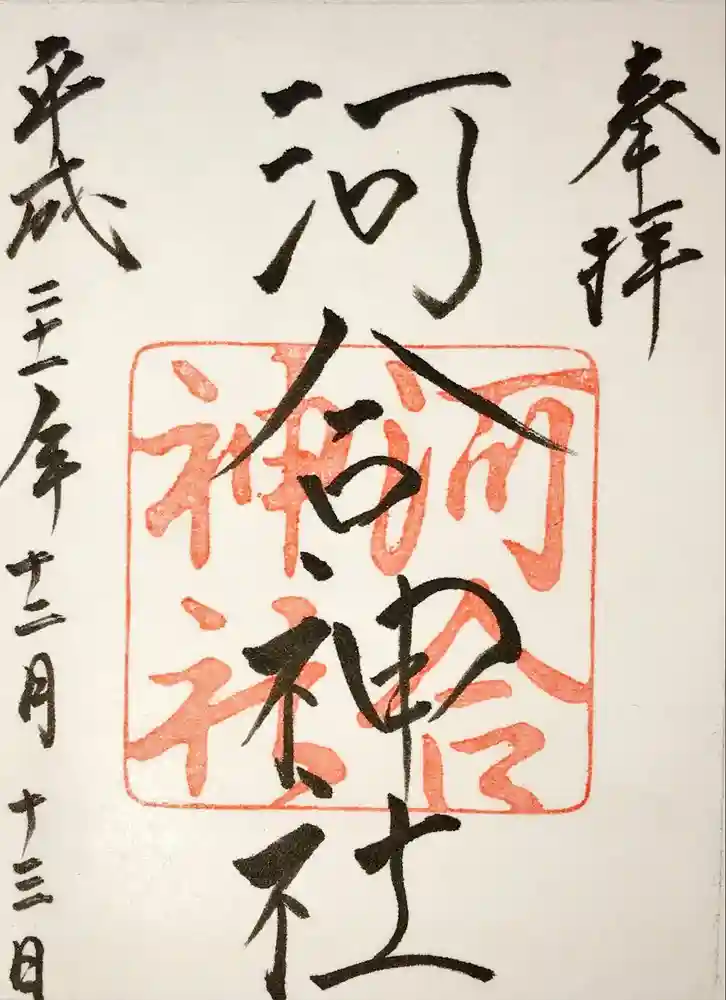 奉拝
河合神社
河合神社
平成二十一年十二月十三日